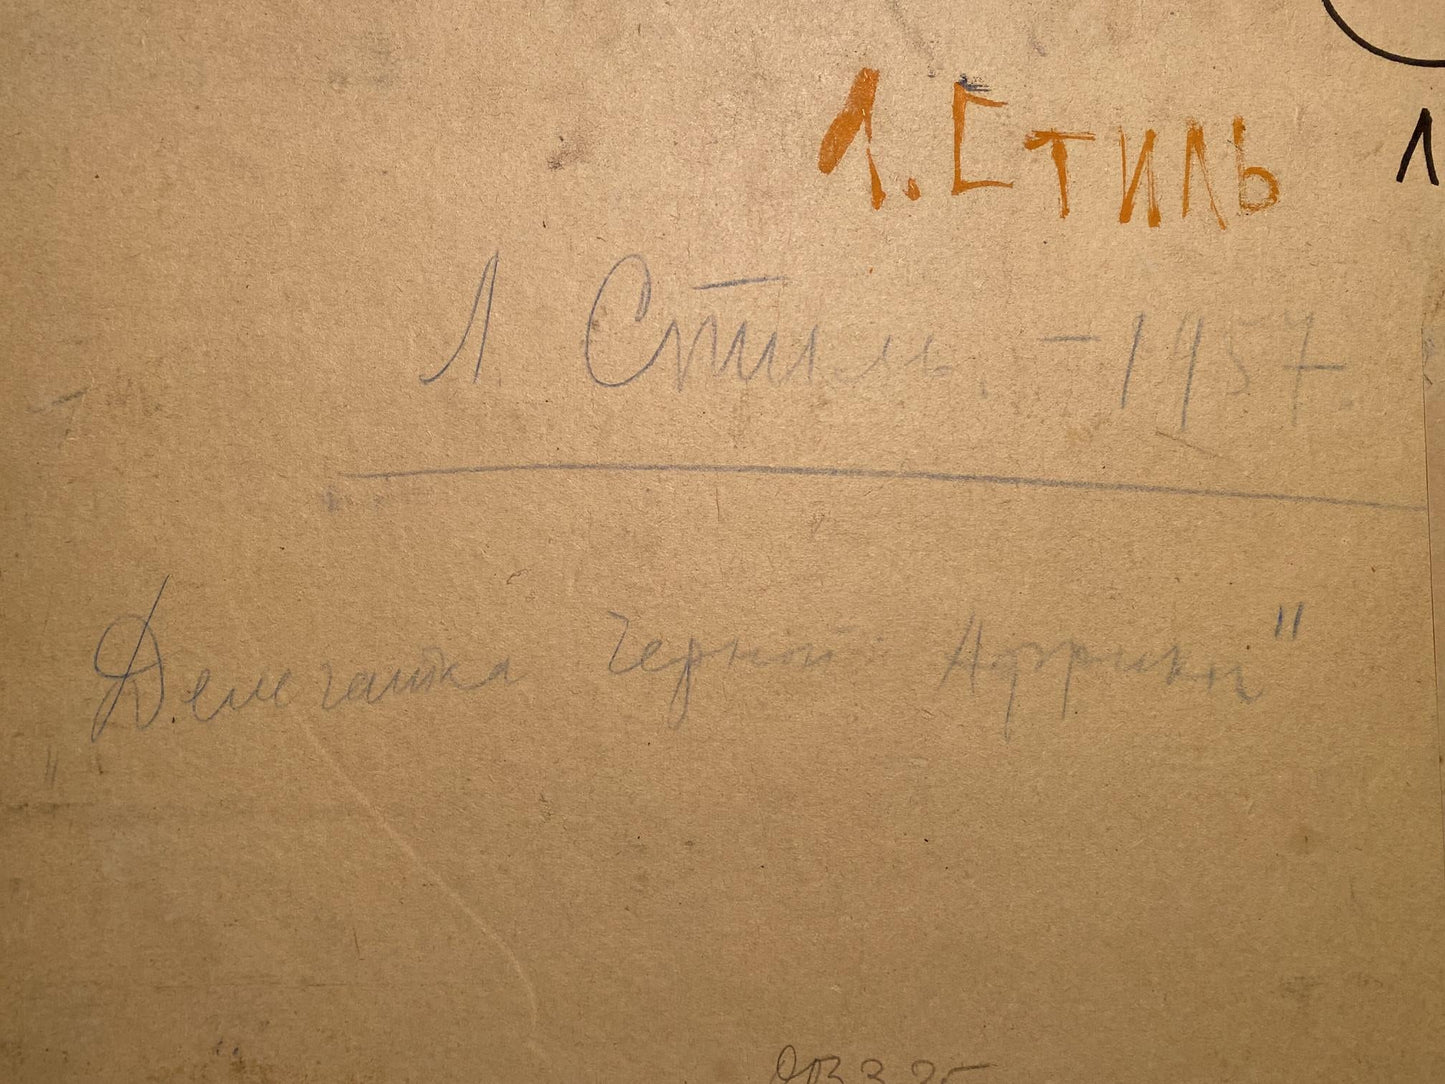 Л. Стиль
Л. Стиль. – 1957.
„Делегатка Черной Африки"